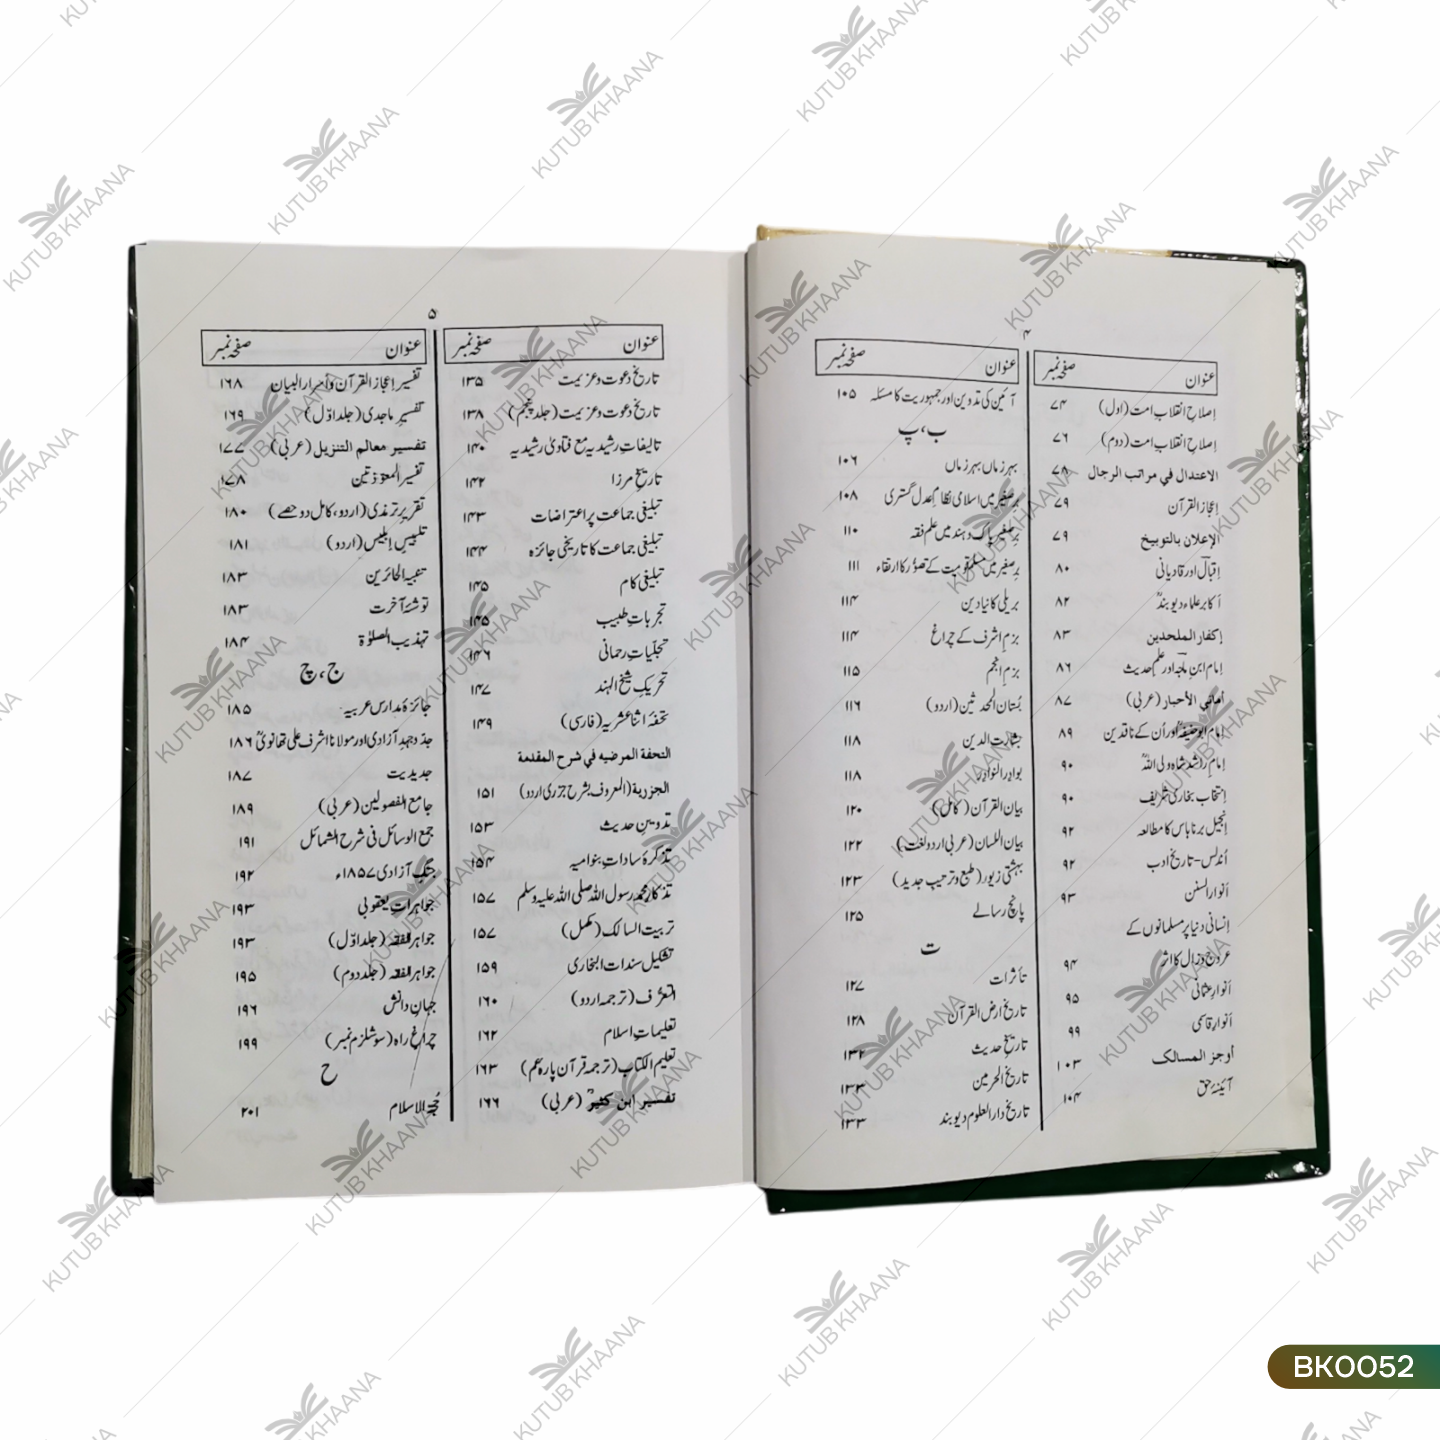 ۴
عنوان صفحہ نمبر
اِصلاحِ انقلابِ امت (اول) ۷۴
اِصلاحِ انقلابِ امت (دوم) ۷۶
الاعتدال في مراتب الرجال ۷۸
اِعجاز القرآن ۷۹
الإعلان بالتوبيخ ۷۹
اِقبال اور قادیانی ۸۰
اکابر علماء دیوبندؒ ۸۲
إكفار الملحدين ۸۳
اِمام ابنِ ماجہ اور علمِ حدیث ۸۶
أماني الأحبار (عربی) ۸۷
اِمام ابوحنیفہؒ اور اُن کے ناقدین ۸۹
اِمامِ راشد شاہ ولی اللہؒ ۹۰
اِنتخاب بخاری شریف ۹۰
اِنجیل برناباس کا مطالعہ ۹۲
اُندلس - تاریخ ادب ۹۲
اَنوار السنن ۹۳
اِنسانی دنیا پر مسلمانوں کے
عروج و زوال کا اثر ۹۴
اَنوارِ عثمانی ۹۵
اَنوارِ قاسمی ۹۹
أوجز المسالک ۱۰۳
آئینۂ حق ۱۰۴
عنوان صفحہ نمبر
آئین کی تدوین اور جمہوریت کا مسئلہ ۱۰۵
ب، پ
بہرزماں بہرزباں ۱۰۶
برِصغیر میں اسلامی نظامِ عدل گستری ۱۰۸
برِصغیر پاک و ہند میں علم فقہ ۱۱۰
برِصغیر میں مسلم قومیت کے تصوّر کا ارتقاء ۱۱۱
بریلی کا نیا دین ۱۱۴
بزمِ اشرف کے چراغ ۱۱۴
بزمِ انجم ۱۱۵
بُستان المحدثین (اردو) ۱۱۶
بشارت الدین ۱۱۸
بوادر النوادر ۱۱۸
بیان القرآن (کامل) ۱۲۰
بیان اللسان (عربی اردو لغت) ۱۲۲
بہشتی زیور (طبع و ترتیب جدید) ۱۲۳
پانچ رسالے ۱۲۵
ت
تأثرات ۱۲۷
تاریخ ارض القرآن ۱۲۸
تاریخِ حدیث ۱۳۲
تاریخ الحرمین ۱۳۳
تاریخ دار العلوم دیوبند ۱۳۳
۵
عنوان صفحہ نمبر
تاریخِ دعوت و عزیمت ۱۳۵
تاریخِ دعوت و عزیمت (جلد پنجم) ۱۳۸
تالیفاتِ رشیدیہ مع فتاویٰ رشیدیہ ۱۴۰
تاریخِ مرزا ۱۴۲
تبلیغی جماعت پر اعتراضات ۱۴۳
تبلیغی جماعت کا تاریخی جائزہ ۱۴۴
تبلیغی کام ۱۴۵
تجرباتِ طبیب ۱۴۵
تجلّیاتِ رحمانی ۱۴۶
تحریکِ شیخ الہند ۱۴۷
تحفۂ اثنا عشریہ (فارسی) ۱۴۹
التحفة المرضيه في شرح المقدمة
الجزرية (المعروف بشرح جزری اردو) ۱۵۱
تدوینِ حدیث ۱۵۳
تذکرۂ ساداتِ بنوامیہ ۱۵۴
تذکارِ محمد رسول اللہ صلی اللہ علیہ وسلم ۱۵۷
تربیت السالک (مکمل) ۱۵۷
تشکیل سندات البخاری ۱۵۹
التعرّف (ترجمہ اردو) ۱۶۰
تعلیماتِ اسلام ۱۶۲
تعلیم الکتاب (ترجمہ قرآن پارہ عم) ۱۶۳
تفسیر ابن کثیرؒ (عربی) ۱۶۶
عنوان صفحہ نمبر
تفسیر اعجاز القرآن و اسرار البیان ۱۶۸
تفسیر ماجدی (جلد اوّل) ۱۶۹
تفسیر معالم التنزیل (عربی) ۱۷۷
تفسیر المعوّذتین ۱۷۸
تقریرِ ترمذی (اردو، کامل دو حصے) ۱۸۰
تلبیسِ اِبلیس (اردو) ۱۸۱
تنبیہ الحائرین ۱۸۳
توشۂ آخرت ۱۸۳
تہذیب الصلوٰۃ ۱۸۴
ج، چ
جائزہ مدارس عربیہ ۱۸۵
جدوجہد آزادی اور مولانا اشرف علی تھانویؒ ۱۸۶
جدیدیت ۱۸۷
جامع الفصولین (عربی) ۱۸۹
جمع الوسائل فی شرح الشمائل ۱۹۱
جنگِ آزادی ۱۸۵۷ء ۱۹۲
جواہراتِ یعقوبی ۱۹۳
جواہر الفقہ (جلد اوّل) ۱۹۳
جواہر الفقہ (جلد دوم) ۱۹۵
جہانِ دانش ۱۹۶
چراغِ راہ (سوشلزم نمبر) ۱۹۹
ح
حُجۃ الاسلام ۲۰۱
KUTUB KHAANA
BK0052